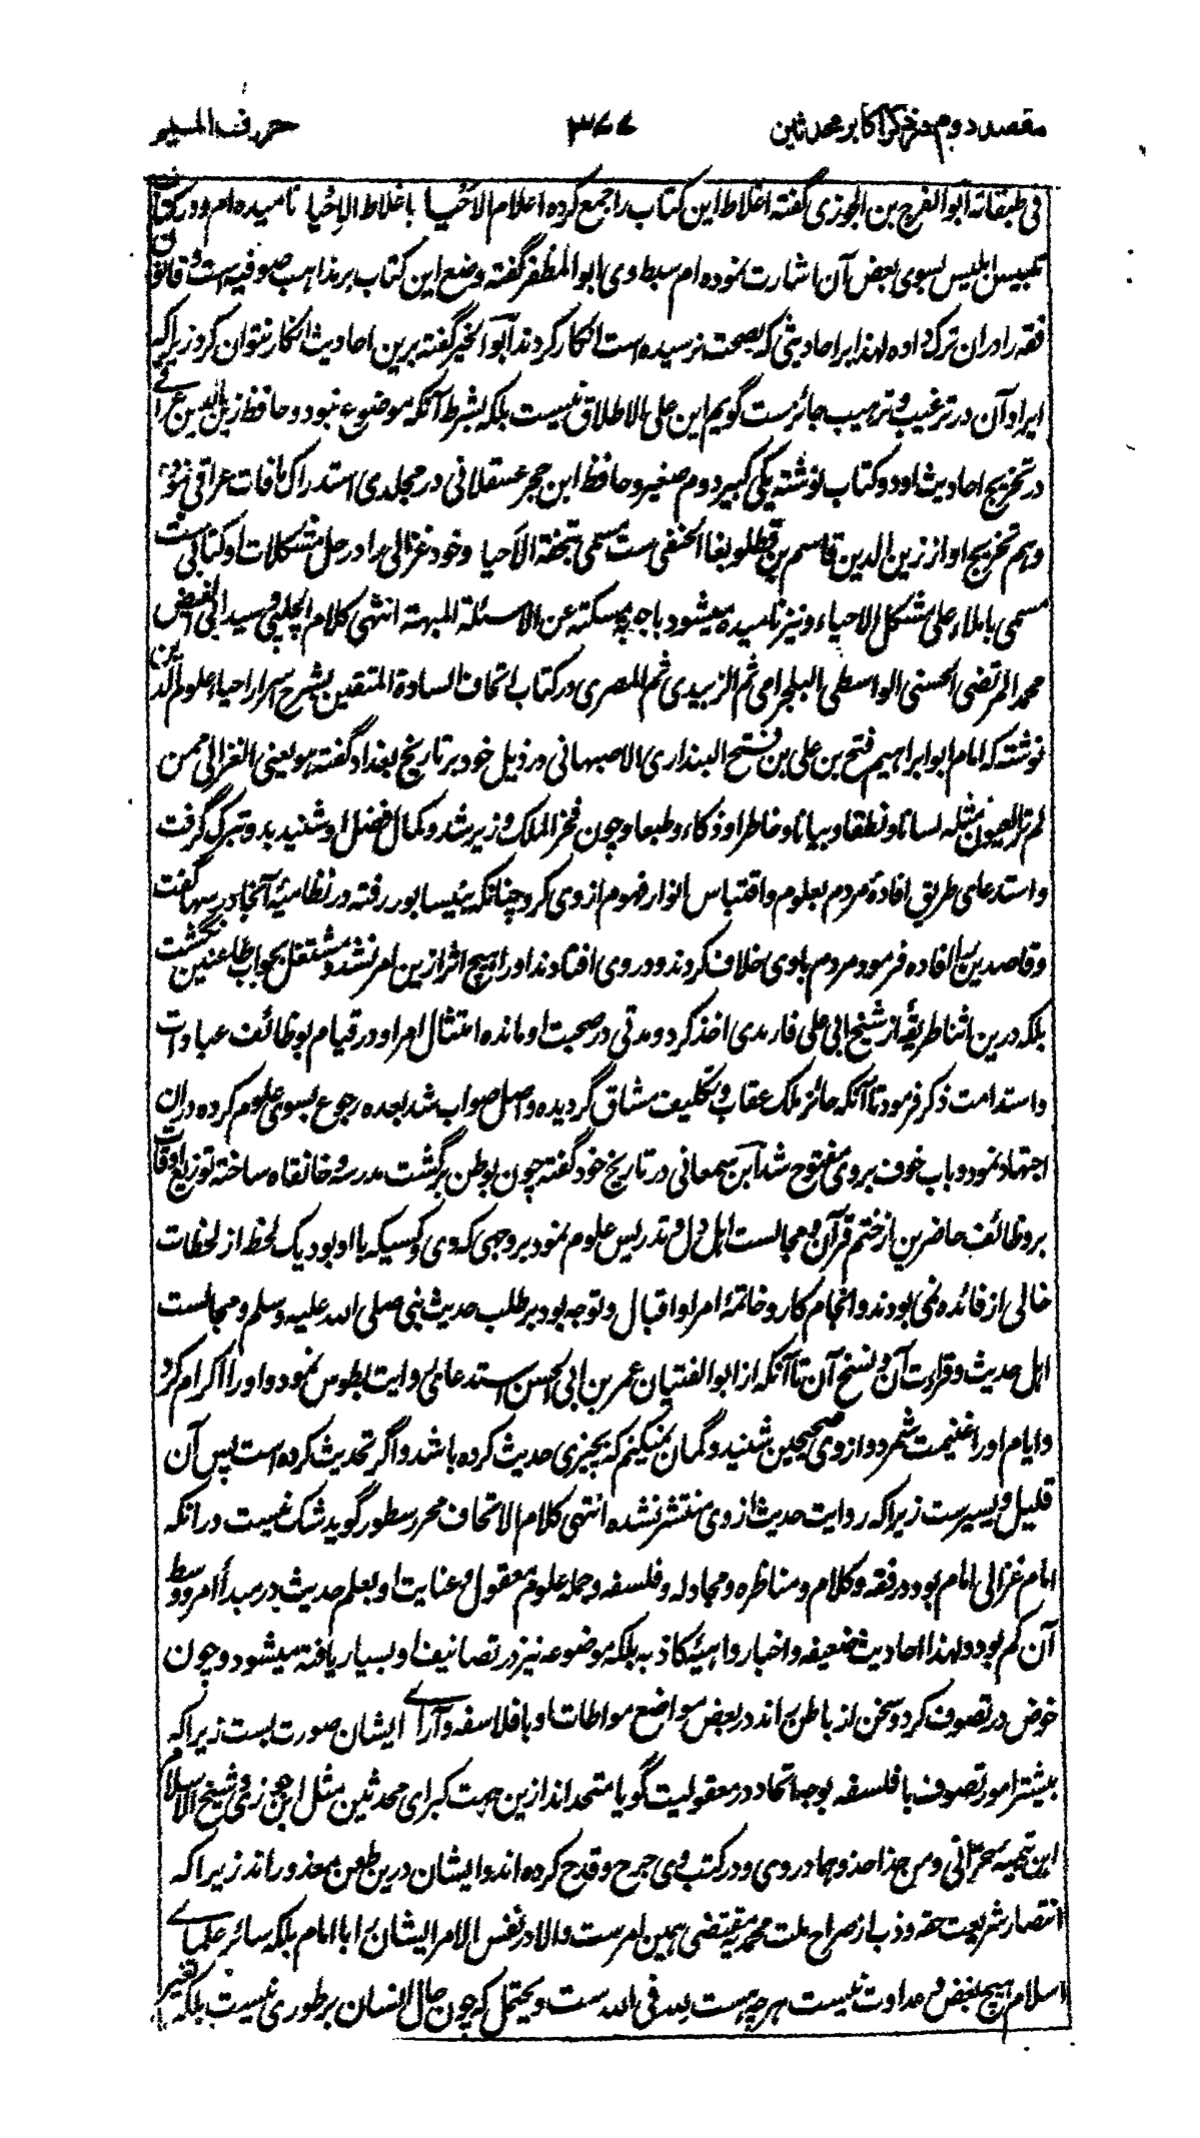 مقصد دوم در ذکر اکابر محدثین ۳۷۷ حرف المیم
فی طبقاته ابو الفرج بن الجوزی گفته اغلاط این کتاب را جمع کرده اعلام الاحیا باغلاط الاحیا نامیده ام و در کتاب
تلبیس ابلیس بسوی بعض آن اشارت نموده ام سبط وی ابو المظفر گفته وضع این کتاب بر مذاهب صوفیه است و قانون
فقه را دران ترک داده لهذا بر احادیثی که بصحت نرسیده است انکار کردند ابو الخیر گفته برین احادیث انکار نتوان کرد زیرا که
ایراد آن در ترغیب و ترهیب جائزست گویم این علی الاطلاق نیست بلکه بشرط آنکه موضوع نبود و حافظ زین الدین عراقی
در تخریج احادیث او دو کتاب نوشته یکی کبیر دوم صغیر و حافظ ابن حجر عسقلانی در مجلدی استدراک مافات عراقی نموده
و هم تخریج او از زین الدین قاسم بن قطلوبغا الحنفی ست مسمی بتحفة الاحیا و خود غزالی را در حل مشکلات او کتابی ست
مسمی باملاء علی مشکل الاحیاء و نیز نامیده میشود باجوبه مسکته عن الاسئلة المبهمة انتهی کلام الچلپی و سید ابی الفیض
محمد المرتضی الحسنی الواسطی البلجرامی ثم الزبیدی ثم المصری در کتاب اتحاف السادة المتقین بشرح اسرار احیاء علوم الدین
نوشته که امام ابو ابراهیم فتح بن علی بن فتح البنداری الاصبهانی در ذیل خود بر تاریخ بغداد گفته هو یعنی الغزالی ممن
لم تر العیون مثله لسانا و نطقا و بیانا و خاطرا و ذکاء و طبعا و چون فخر الملک وزیر شد و کمال فضل او شنید بدو تبرک گرفت
و استدعای طریق افادۀ مردم بعلوم و اقتباس انوار فهوم از وی کرد چنانکه بنیسابور رفته در نظامیۀ آنجا درسها گفت
و قاصدین را افاده فرمود مردم باوی خلاف کردند و در وی افتادند او را هیچ اثر ازین امر نشد و مشتغل بجواب طاعنین نگشت
بلکه درین اثنا طریقه از شیخ ابی علی فارمدی اخذ کرد و مدتی در صحبت او مانده امتثال امر او در قیام بوظائف عبادات
و استدامت ذکر فرمود تا آنکه جائز ملک عقاب و تکلیف مشاق گردیده واصل صواب شد بعده رجوع بسوی علوم کرده دران
اجتهاد نمود و باب خوف بر وی مفتوح شد ابن سمعانی در تاریخ خود گفته چون بوطن برگشت مدرسه و خانقاه ساخته توزیع اوقات
بر وظائف حاضرین از ختم قرآن و مجالست اهل دل و تدریس علوم نمود بر وجهی که وی و کسیکه با او بود یک لحظ از لحظات
خالی از فائده نمی بودند و انجام کار و خاتمۀ امر او اقبال و توجه بود بر طلب حدیث نبی صلی الله علیه وسلم و مجالست
اهل حدیث و قراءت آن و نسخ آن تا آنکه از ابو الفتیان عمر بن ابی الحسن استدعای روایت بطوس نمود و او را اکرام کرد
و ایام او را غنیمت شمرد و از وی صحیحین شنید و گمان نمیکنم که بچیزی حدیث کرده باشد و اگر تحدیث کرده است پس آن
قلیل و یسیرست زیرا که روایت حدیث از وی منتشر نشده انتهی کلام الاتحاف محرر سطور گوید شک نیست درانکه
امام غزالی امام بود در فقه و کلام و مناظره و مجادله و فلسفه و جمله علوم معقول و عنایت او بعلم حدیث در مبدأ امر و وسط
آن کم بود و لهذا احادیث ضعیفه و اخبار واهیۀ کاذبه بلکه موضوعه نیز در تصانیف او بسیار یافته میشود و چون
خوض در تصوف کرد و سخن از باطن راند در بعض مواضع مواطات او با فلاسفه و آرای ایشان صورت بست زیرا که
بیشتر امور تصوف با فلسفه بوجه اتحاد در معقولیت گویا متحد اند ازین جهت کبرای محدثین مثل ابن جوزی و شیخ الاسلام
ابن تیمیۀ حرانی و من حذا حذوهما در وی و در کتب وی جرح و قدح کرده اند و ایشان درین طعن معذور اند زیرا که
انتصار شریعت حقه و ذب از صراح ملت محمدیه مقتضی همین امر ست والا در نفس الامر ایشان را با امام بلکه سائر علمای
اسلام هیچ بغض و عداوت نیست هرچه هست لله فی الله ست و یحتمل که چون حال انسان بر طوری نیست بلکه تغیر